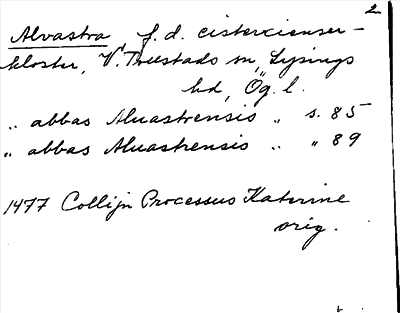 2
Alvastra, f. d. cistercienser-
kloster, V. Tollstads sn, Lysings
hd, Ög. l.
„ abbas Aluastrensis „ s. 85
„ abbas Aluastrensis „ „ 89
1477 Collijn Processus Katerine
orig.